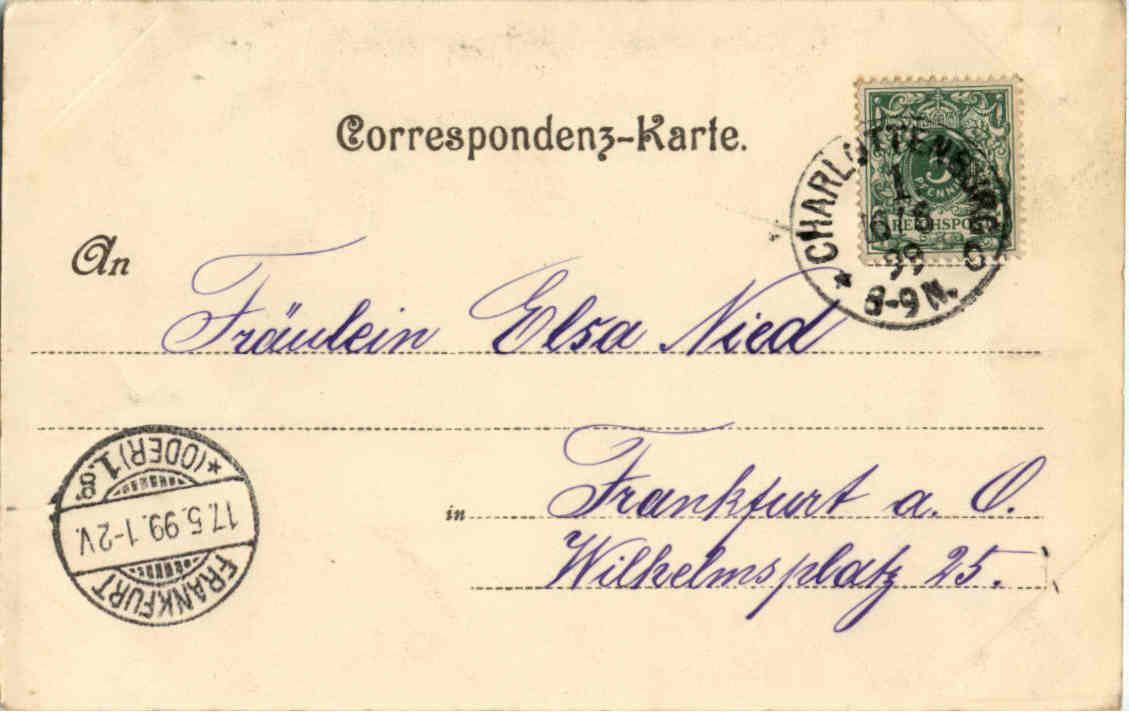 Correspondenz-Karte.
CHARLOTTENBURG
1
16/5
99
8-9 N.
5
PFENNIG
REICHSPOST
An
Fräulein Elsa Nied
in Frankfurt a. O.
Wilhelmsplatz 25.
FRANKFURT
17.5.99.1-2V.
*(ODER)1.